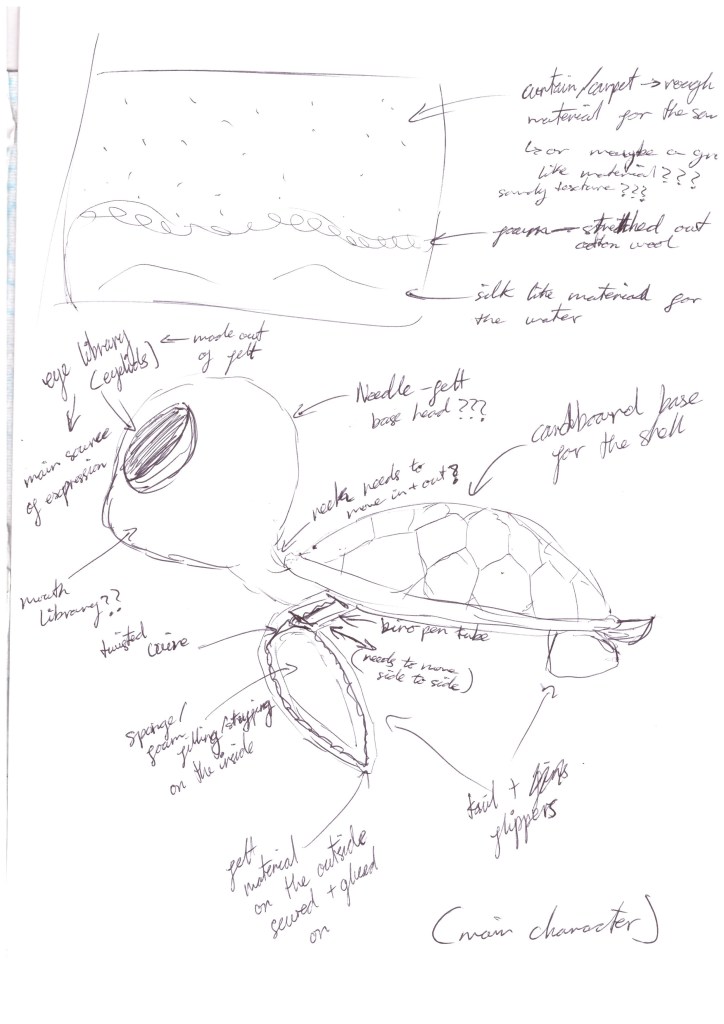 curtain/carpet → rough
material for the
↳ or maybe a
like material???
sandy texture???
foam — stretched out
cotton wool
silk like material for
the water
eye library
(eyelids)
← made out
of felt
main source
of expression
Needle-felt
base head???
cardboard base
for the shell
neck needs to
move in + out?
mouth
library??
twisted wire
biro pen tube
(needs to move
side to side)
sponge/
foam filling/stuffing
on the inside
tail +
flippers
felt
material
on the outside
sewed + glued
on
(main character)